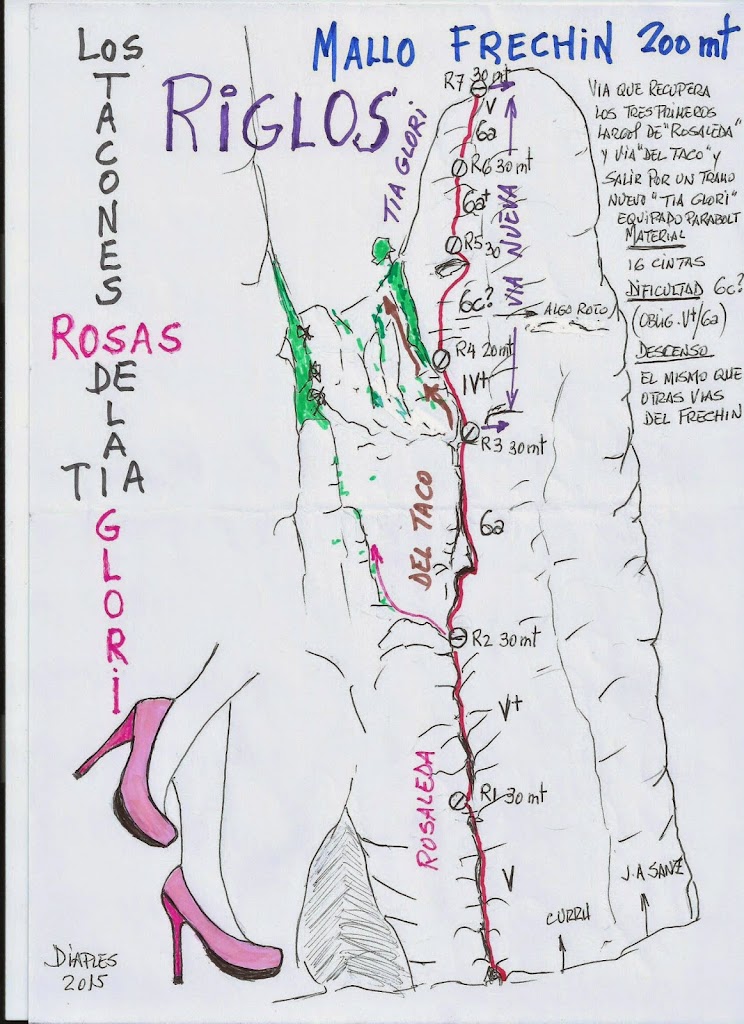 LOS TACONES ROSAS DE LA TIA GLORI
MALLO FRECHIN 200 mt
RIGLOS
VIA QUE RECUPERA
LOS TRES PRIMEROS
LARGOS DE "ROSALEDA"
Y VIA "DEL TACO" Y
SALIR POR UN TRAMO
NUEVO "TIA GLORI"
EQUIPADO PARABOLT
MATERIAL
16 CINTAS
DIFICULTAD 6c?
(OBLIG. V+/6a)
DESCENSO
EL MISMO QUE
OTRAS VIAS
DEL FRECHIN
R7 30 mt
V
6a
R6 30 mt
6a+
R5 30
6c?
ALGO ROTO
R4 20 mt
IV+
R3 30 mt
6a
R2 30 mt
V+
R1 30 mt
V
TIA GLORI
VIA NUEVA
DEL TACO
ROSALEDA
J.A SANZ
DIAPLES
2015